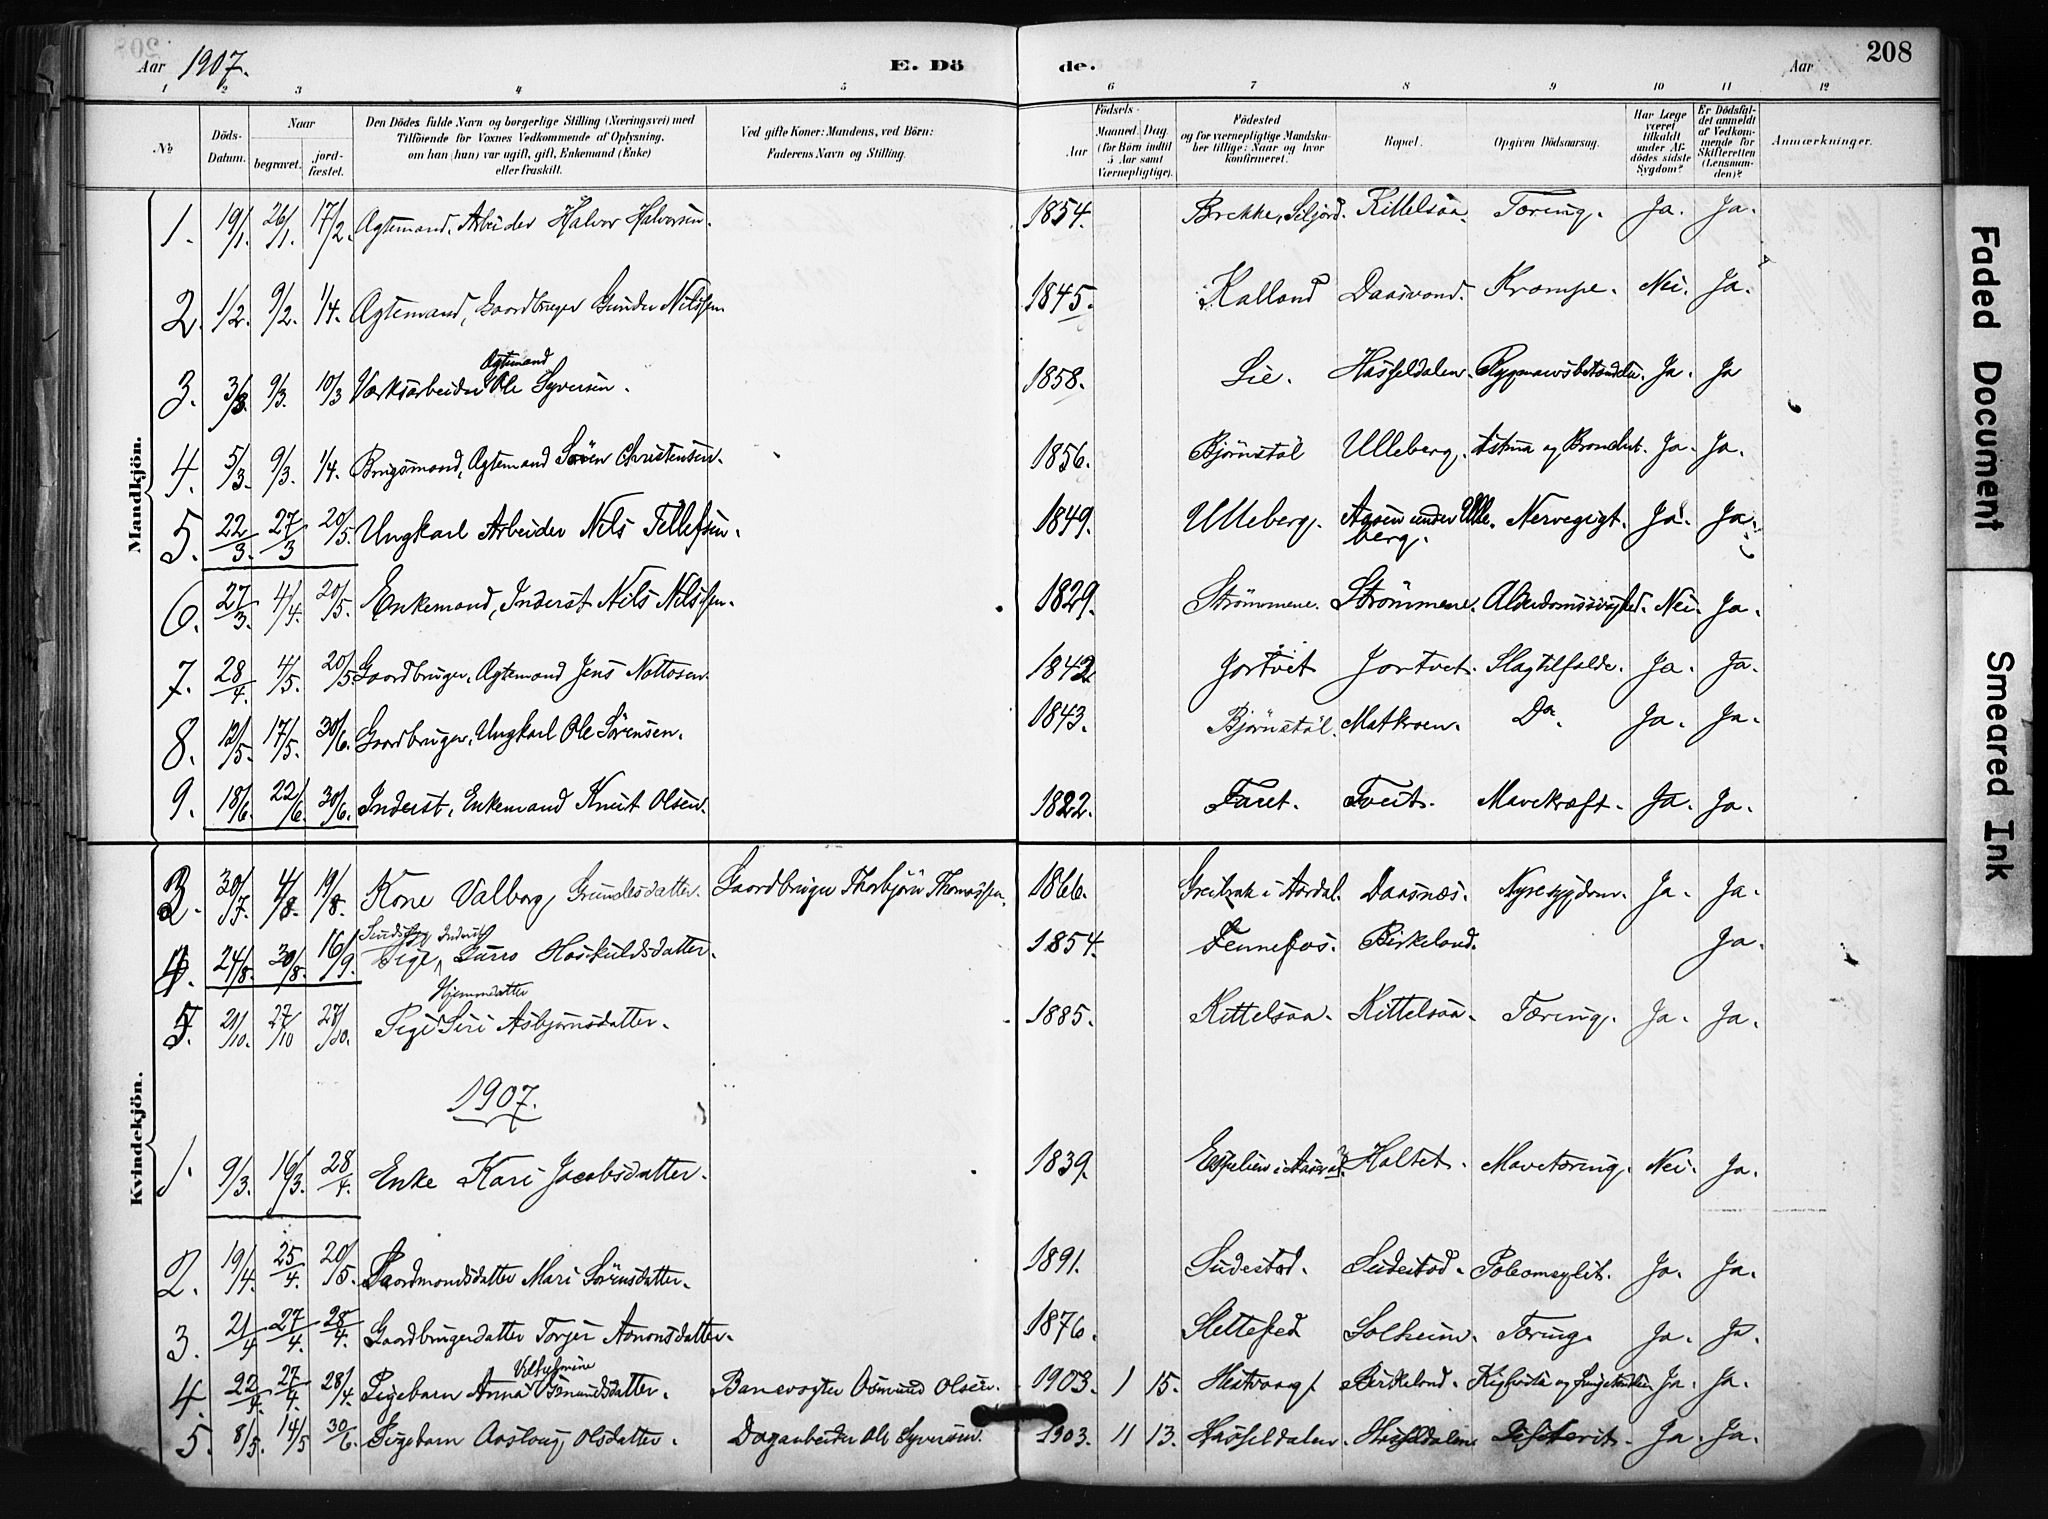 Aar 1907. E. Dö de. Aar 208
1 2 3 4 5 6 7 8 9 10 11 12
No
Döds-Datum.
Naar
begravet.
jord-fæstet.
Den Dödes fulde Navn og borgerlige Stilling (Næringsvei) med
Tilföiende for Voxnes Vedkommende af Oplysning,
om han (hun) var ugift, gift, Enkemand (Enke)
eller fraskilt.
Ved gifte Koner: Mandens, ved Börn:
Faderens Navn og Stilling.
Födsels-
Aar
Maaned. Dag
(for Börn indtil
5 Aar samt
Værnepligtige).
Födested
og for værnepligtige Mandska-
ber tillige: Naar og hvor
konfirmeret.
Bopæl.
Opgiven Dödsaarsag.
Har Læge
været
tilkaldt
under Af-
dödes sidste
Sygdom?
Er Dödsfal-
det anmeldt
af Vedkom-
mende for
Skifteretten
(Lensman-
den)?
Anmærkninger.
Mandkjön.
1. 19/1. 26/1. 17/2. Ægtemand, Arbeider Halvor Halvorsen. 1854. Brekke, Siljord. Kittelsaa. Tæring. Ja. Ja.
2. 1/2. 9/2. 1/4. Ægtemand, Gaardbruger Gunder Nilssen 1845. Kalland Daasvand. Krampe. Nei. Ja.
Ægtemand
3. 3/3. 9/3. 10/3 Værksarbeider Ole Syversen. 1858. Lie. Hasseldalen. Rygmarvsbetændelse. Ja. Ja
4. 5/3. 9/3. 1/4. Brugsmand, Ægtemand Sören Christensen. 1856. Bjørnstøl Ulleberg. Astma og Bronchit. Ja. Ja.
5. 22/3. 27/3 20/5. Ungkarl Arbeider Nils Tellefsen. 1849. Ulleberg. Aasen under Ulle- Nervegigt. Ja. Ja.
berg.
6. 27/3. 4/4. 20/5. Enkemand, Inderst Nils Nilssen. 1829. Strömmene. Strömmene. Alderdomssvaghed. Nei. Ja.
7. 28/4. 4/5. 20/5. Gaardbruger, Ægtemand Jens Nottosen. 1842 Jortvet Jortvet. Slagtilfælde. Ja. Ja.
8. 12/5. 17/5. 30/6. Gaardbruger, Ungkarl Ole Sörensen. 1843. Bjørnstøl. Matkroen. Do. Ja. Ja.
9. 18/6. 22/6. 30/6. Inderst, Enkemand Knut Olsen. 1822. Faret. Tveit. Mavekræft. Ja. Ja.
Kvindekjön.
3. 30/7. 4/8. 19/8. Kone Valborg Gundersdatter. Gaardbruger Thorbjörn Thomassen. 1866. i Aardal. Daasnæs. Nyresygdom. Ja. Ja.
Inderst
4. 24/8. 30/8. 16/9. Pige, Gurro Hoskuldsdatter. 1854. Fennefos. Birkeland. Ja.
Hjemmedatter
5. 21/10. 27/10 27/10. Pige Siri Asbjørnsdatter. 1885. Kittelsaa. Kittelsaa. Tæring. Ja. Ja.
1907.
1. 9/3. 16/3. 28/4. Enke Kari Jacobsdatter. 1839. Haltet. Mavetæring. Nei. Ja.
2. 19/4. 25/4. 20/5. Gaardmandsdatter Mari Sörensdatter. 1891. Sudestad. Sudestad. Poleomeylit. Ja. Ja.
3. 21/4 27/4. 28/4. Gaardbrugerdatter Torjer Aanonsdatter. 1876. Slettefed Solheim. Tæring. Ja. Ja.
Vilhelmine
4. 22/4. 27/4. 28/4. Pigebarn Anna Osmundsdatter. Banevogter Osmund Olsen. 1903. 1 15. Hestvaag. Birkeland. Kighoste og Ja. Ja.
5. 8/5. 14/5 30/6. Pigebarn Aaslaug Olsdatter. Dagarbeider Ole Syversen. 1903. 11 13. Hasseldalen. Hasseldalen. Difterit. Ja. Ja.
Faded Document
Smeared Ink